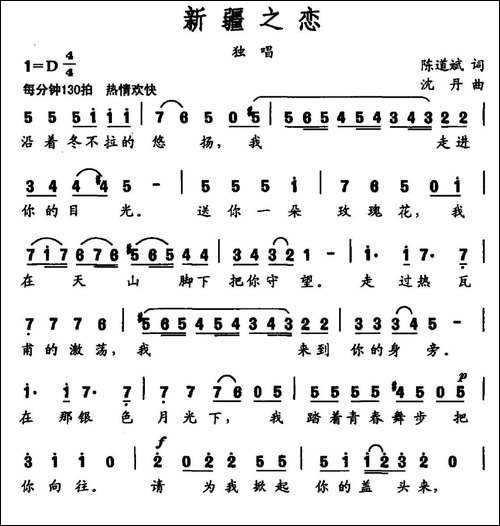 新疆之恋
独唱
1=D 4/4
陈道斌 词
每分钟130拍 热情欢快
沈丹 曲
5 5 5 i i | 7 6 5 0 #5 | 5 6 5 4 5 4 3 4 3 2 2 |
沿着冬不拉的悠扬,我 走进
3 4 4 #4 5 - | 5 5 5 i | 7 6 5 0 i |
你的目光。 送你一朵 玫瑰花,我
7 i 7 6 7 6 #5 6 5 4 4 | 3 4 3 2 1 - | i· i 7· 7 |
在天山脚下把你守望。走过热瓦
7 7 7 6 | #5 6 5 4 5 4 3 4 3 2 2 | 3 3 3 4 5 - |
甫的激荡,我 来到你的身旁。
i· i 7· 7 | 7 7 7 6 0 5 | 5 5 5 5 #4 5 0 5 | p
在那银色月光下,我踏着青春舞步把
f
3 i i 0 | 2 0 2 2 5 5 | 5 i i 2 i 0 |
你向往。请为我掀起你的盖头来,